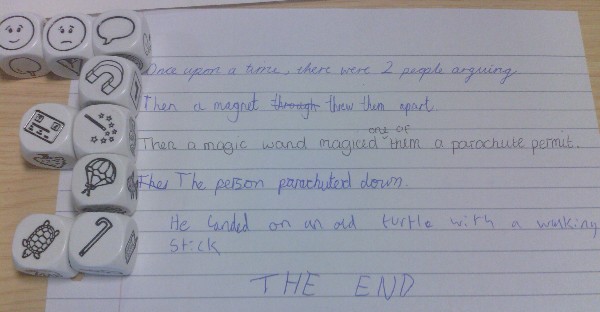 Once upon a time, there were 2 people arguing
Then a magnet through threw them apart.
one of
Then a magic wand magiced them a parachute permit.
The The person parachuted down.
He landed on an old turtle with a walking
stick
THE END